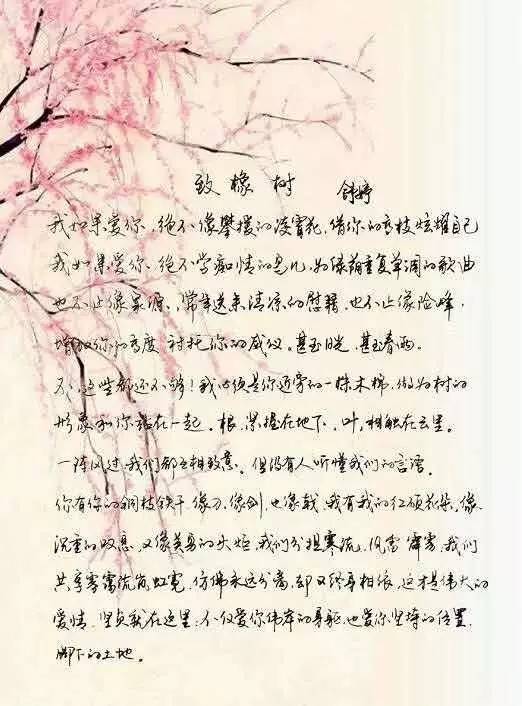 致橡树 舒婷
我如果爱你，绝不像攀援的凌霄花，借你的高枝炫耀自己
我如果爱你、绝不学痴情的鸟儿，为绿荫重复单调的歌曲
也不止像泉源、常年送来清凉的慰藉、也不止像险峰，
增加你的高度 衬托你的威仪。甚至日光，甚至春雨。
不、这些都还不够！我必须是你近旁的一株木棉，做为树的
形象和你站在一起。根，紧握在地下、叶，相触在云里。
一阵风过，我们都互相致意。但没有人听懂我们的言语。
你有你的铜枝铁干，像刀、像剑，也像戟，我有我的红硕花朵，像
沉重的叹息，又像英勇的火炬，我们分担寒流，风雷 霹雳，我们
共享雾霭流岚虹霓，仿佛永远分离，却又终身相依，这才是伟大的
爱情，坚贞就在这里：不仅爱你伟岸的身躯，也爱你坚持的位置，
脚下的土地。